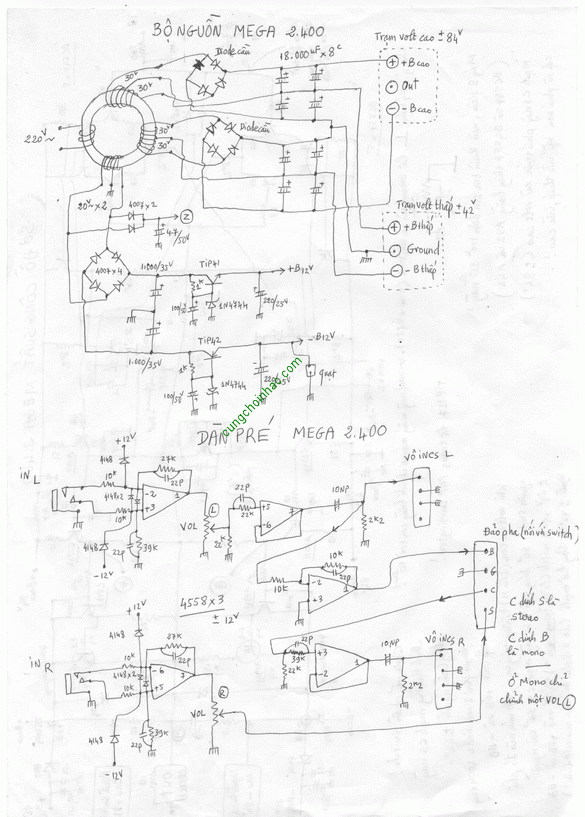 BỘ NGUỒN MEGA 2.400
Diode cầu
18.000µF x 8c
Trạm volt cao ± 84V
+B cao
Out
-B cao
30V
30V
220V~
30V
30V
Diode cầu
20V~ x 2
4007 x 2
Z
47/50V
Trạm volt thấp ± 42V
+B thấp
Ground
-B thấp
4007 x 4
1.000/35V
TIP41
1K
100/50V
1N4744
220/25V
+B12V
TIP42
-B12V
1.000/35V
1K
100/50V
1N4744
220/25V
quạt
cungchoinhac.com
DÀN PRÉ MEGA 2.400
+12V
IN L
4148
10K
4148x2
10K
27K
22P
-2
+3
1
4148
22P
39K
-12V
L
VOL
22P
22K
22K
+5
-6
7
10NP
2K2
VÔ INCS L
10K
10K
22P
-2
+3
1
Đảo pha (nối với switch)
B
G
C
S
C dính S là
stereo
C dính B
là mono
Ở Mono chỉ
chỉnh một VOL L
4558 x 3
± 12V
+12V
IN R
4148
10K
4148x2
10K
27K
22P
-6
+5
7
4148
22P
39K
-12V
R
VOL
22P
39K
22K
+3
-2
1
10NP
2K2
VÔ INCS R